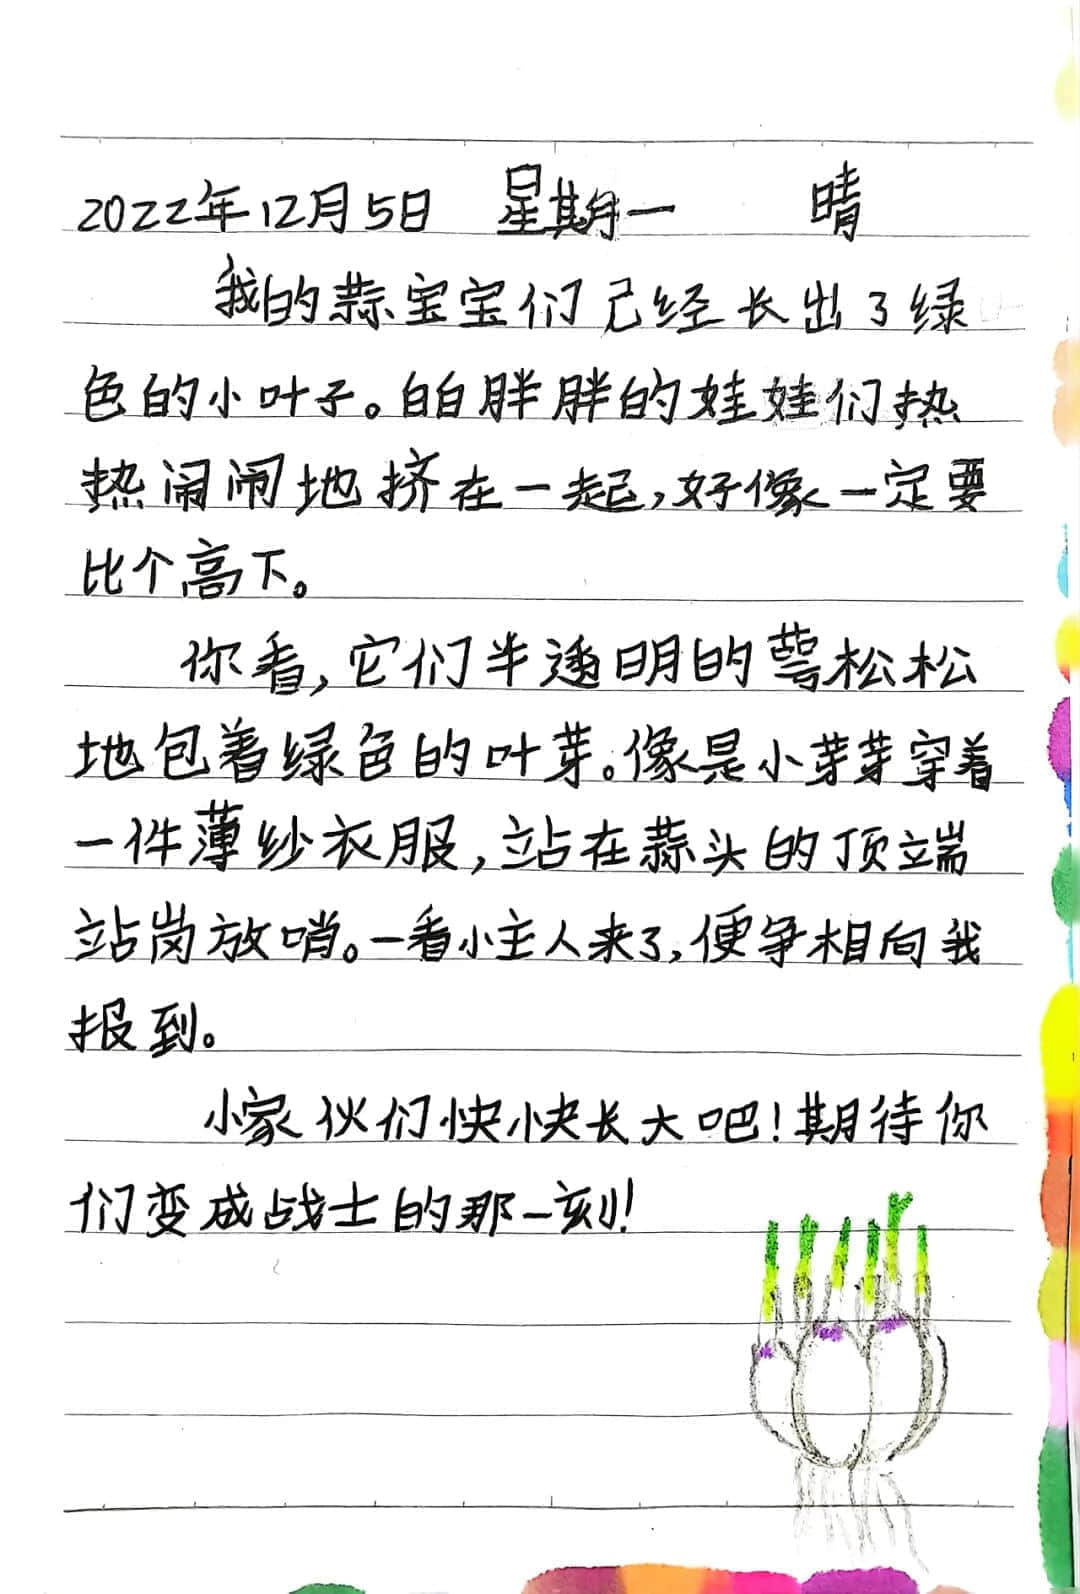 2022年12月5日 星期一 晴
我的蒜宝宝们已经长出了绿
色的小叶子。白白胖胖的娃娃们热
热闹闹地挤在一起,好像一定要
比个高下。
你看,它们半透明的萼松松
地包着绿色的叶芽。像是小芽芽穿着
一件薄纱衣服,站在蒜头的顶端
站岗放哨。一看小主人来了,便争相向我
报到。
小家伙们快快长大吧!期待你
们变成战士的那一刻!